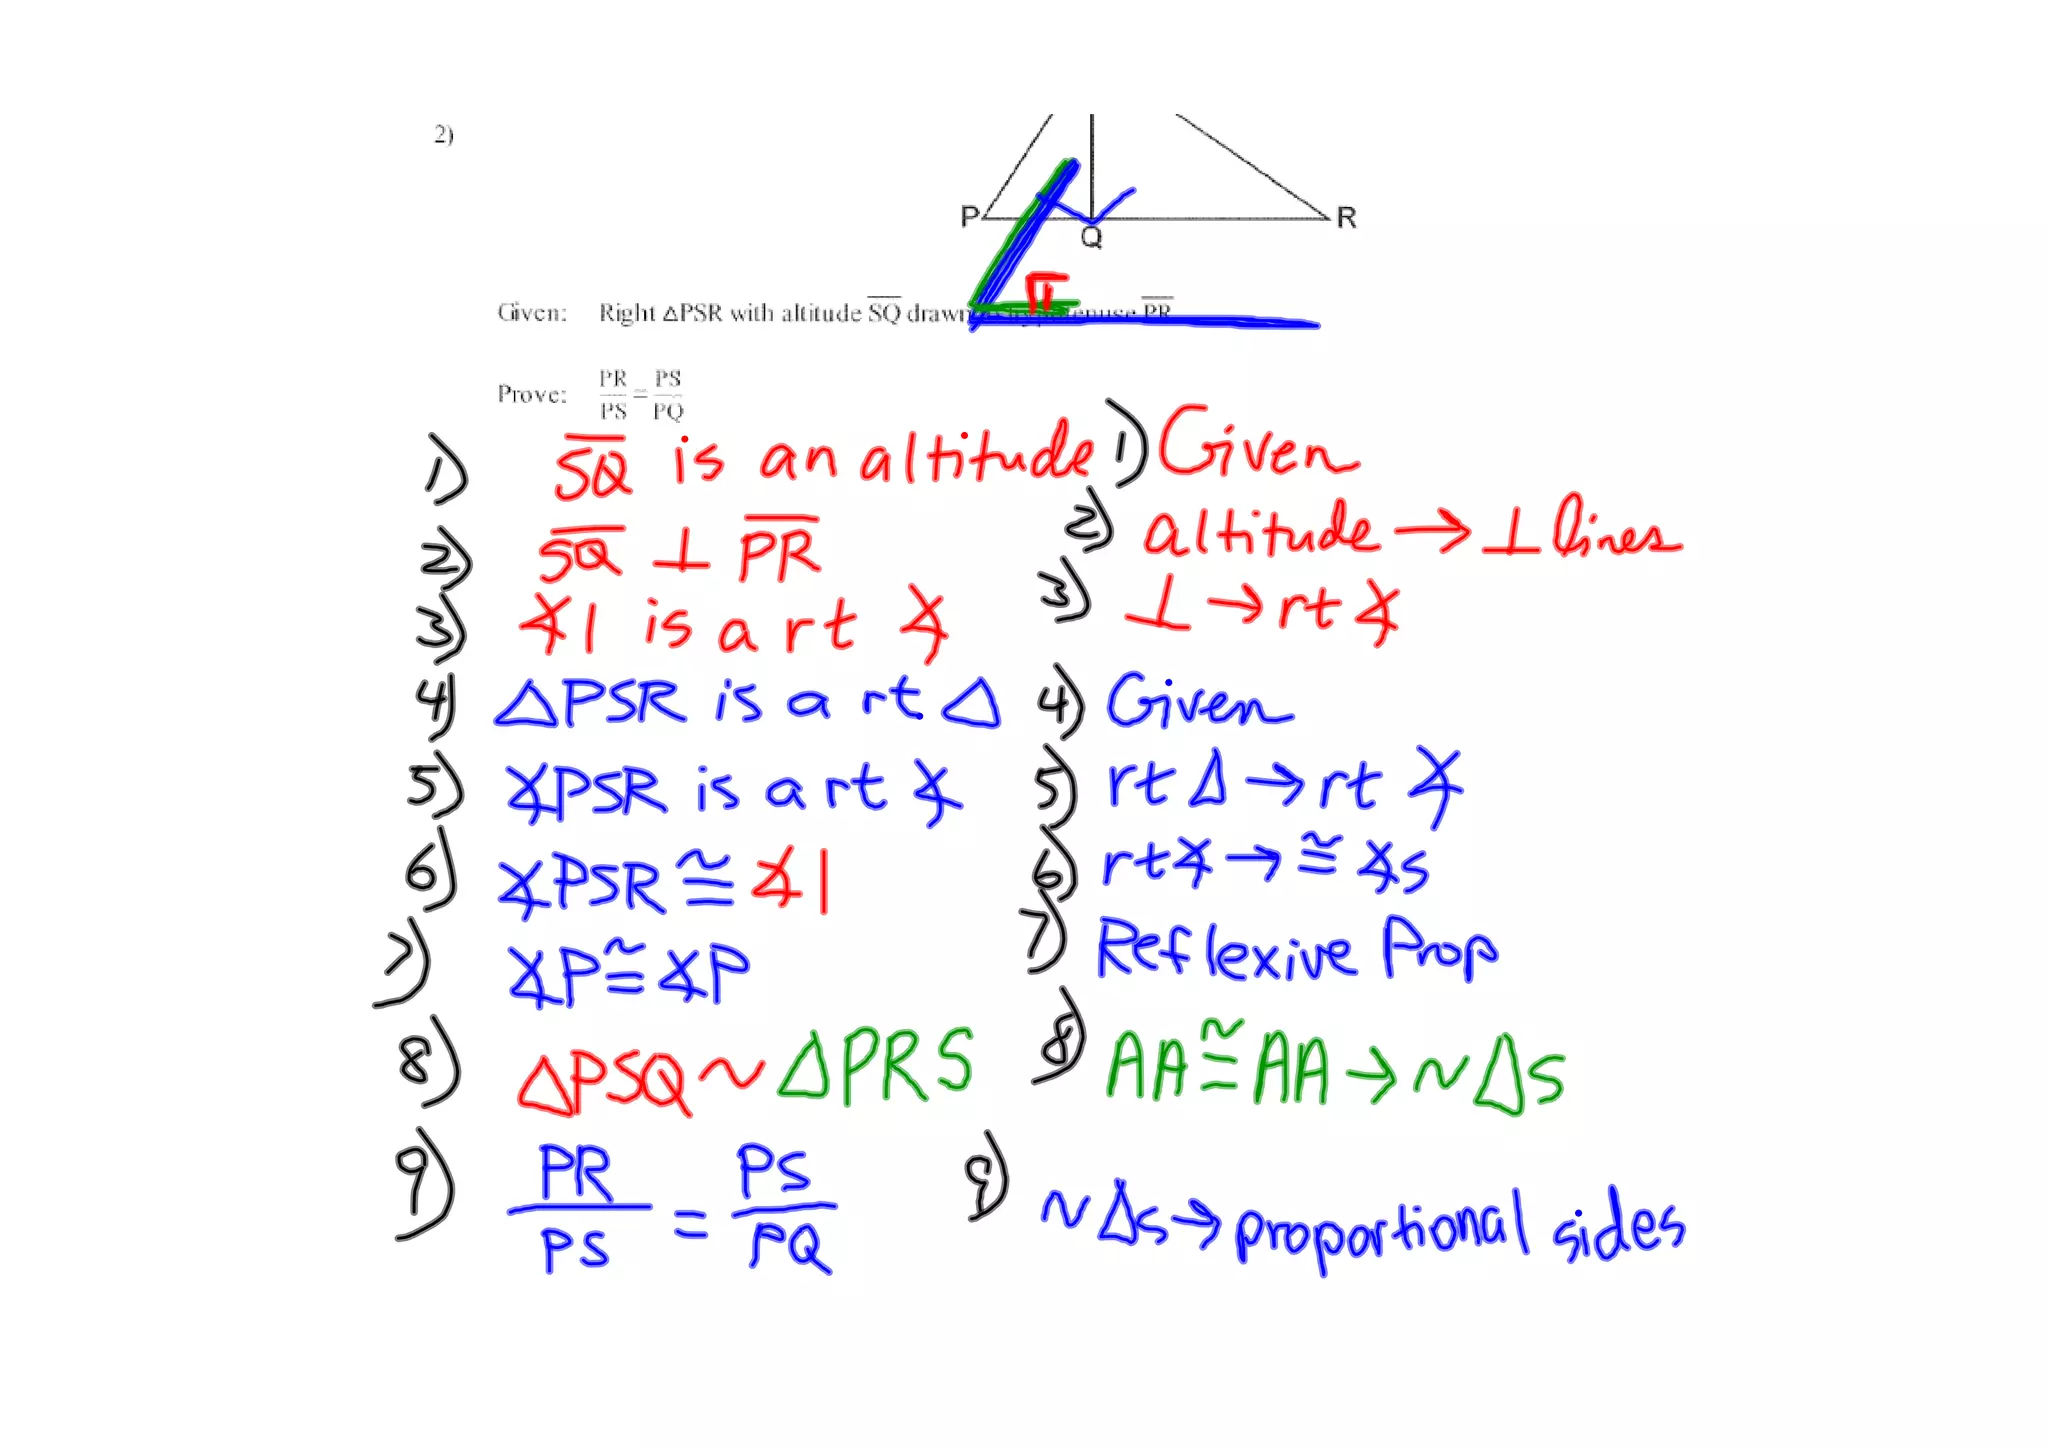 2)
P
R
Q
Given: Right △PSR with altitude SQ drawn to hypotenuse PR
Prove: PR/PS = PS/PQ
1) SQ is an altitude 1) Given
2) SQ ⊥ PR 2) altitude → ⊥ lines
3) ∡1 is a rt ∡ 3) ⊥ → rt ∡
4) △PSR is a rt. △ 4) Given
5) ∡PSR is a rt ∡ 5) rt △ → rt ∡
6) ∡PSR ≅ ∡1 6) rt ∡ → ≅ ∡s
7) ∡P ≅ ∡P 7) Reflexive Prop
8) △PSQ ~ △PRS 8) AA ≅ AA → ~ △s
9) PR/PS = PS/PQ 9) ~ △s → proportional sides